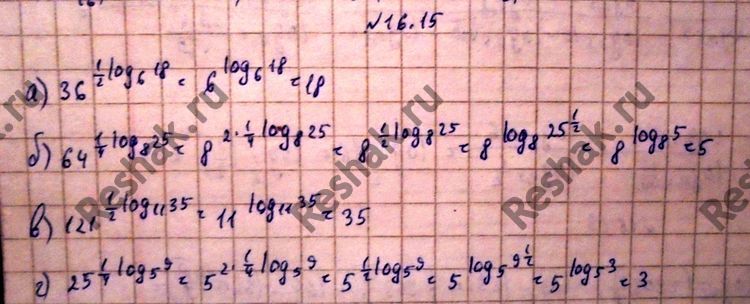 №16.15
а) 36^{\frac{1}{2}log_6 18} = 6^{log_6 18} = 18
б) 64^{\frac{1}{4}log_8 25} = 8^{2·\frac{1}{4}log_8 25} = 8^{\frac{1}{2}log_8 25} = 8^{log_8 25^{\frac{1}{2}}} = 8^{log_8 5} = 5
в) 121^{\frac{1}{2}log_{11} 35} = 11^{log_{11} 35} = 35
г) 25^{\frac{1}{4}log_5 9} = 5^{2·\frac{1}{4}log_5 9} = 5^{\frac{1}{2}log_5 9} = 5^{log_5 9^{\frac{1}{2}}} = 5^{log_5 3} = 3
Reshak.ru
Reshak.ru
Reshak.ru
Reshak.ru